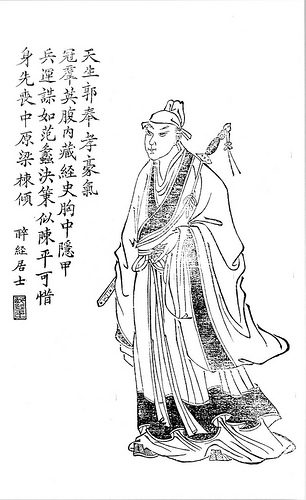 天生郭奉孝豪氣
冠羣英腹内藏經史胸中隱甲
兵運謀如范蠡決策似陳平可惜
身先喪中原梁棟傾
醉經居士